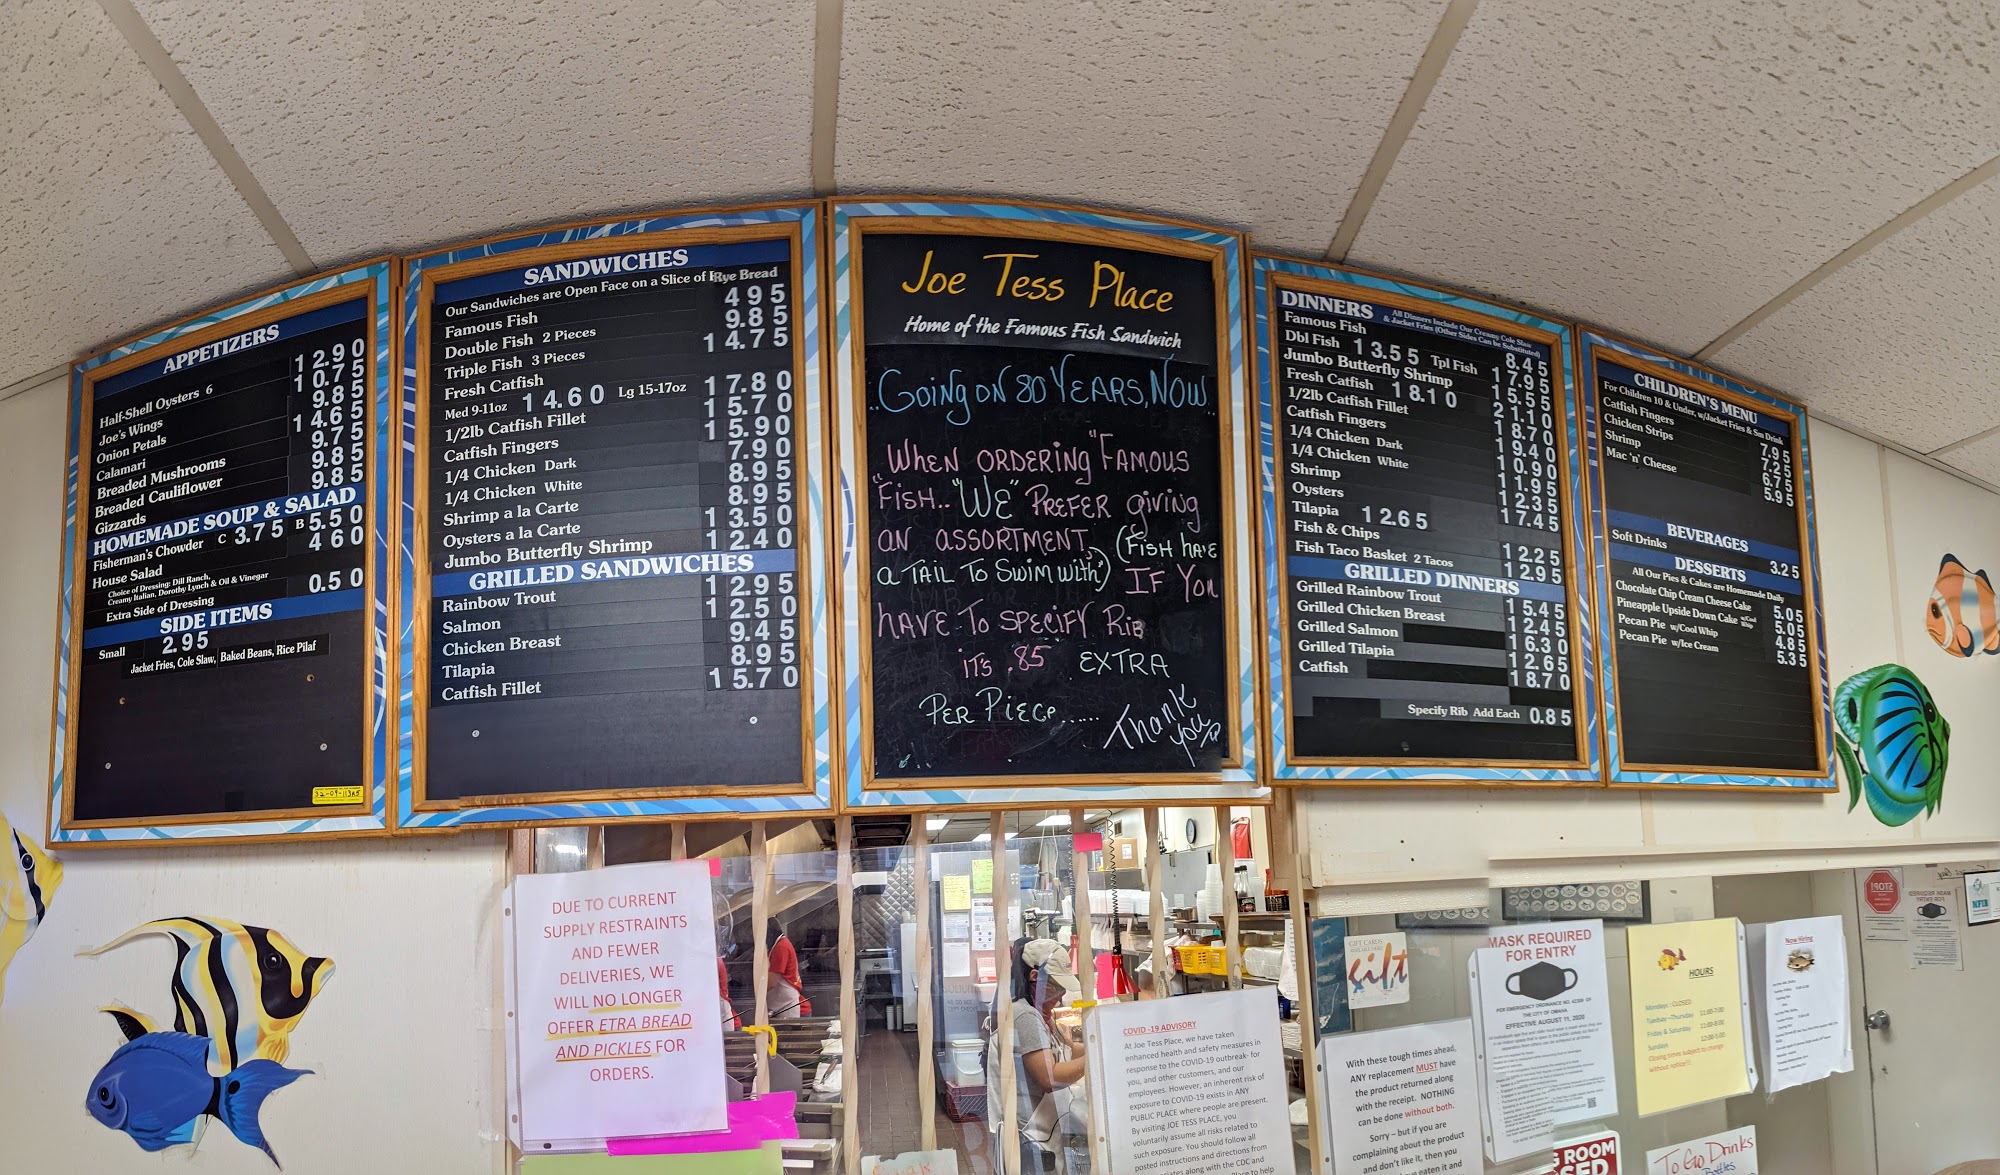 APPETIZERS
Half-Shell Oysters 6 12.90
Joe's Wings 10.75
Onion Petals 9.85
Calamari 14.65
Breaded Mushrooms 9.75
Breaded Cauliflower 9.85
Gizzards 9.85
HOMEMADE SOUP & SALAD
Fisherman's Chowder C 3.75 B 5.50
House Salad 4 60
Choice of Dressing: Dill Ranch,
Creamy Italian, Dorothy Lynch & Oil & Vinegar
Extra Side of Dressing 0.50
SIDE ITEMS
Small 2.95
Jacket Fries, Cole Slaw, Baked Beans, Rice Pilaf
32-09-113A5
SANDWICHES
Our Sandwiches are Open Face on a Slice of Rye Bread
Famous Fish 4 95
Double Fish 2 Pieces 9.85
Triple Fish 3 Pieces 14.75
Fresh Catfish
Med 9-11oz 14.60 Lg 15-17oz 17.80
1/2lb Catfish Fillet 15.70
Catfish Fingers 15.90
1/4 Chicken Dark 7.90
1/4 Chicken White 8.95
Shrimp a la Carte 8.95
Oysters a la Carte 13.50
Jumbo Butterfly Shrimp 12.40
GRILLED SANDWICHES
Rainbow Trout 12.95
Salmon 12.50
Chicken Breast 9.45
Tilapia 8.95
Catfish Fillet 15.70
Joe Tess Place
Home of the Famous Fish Sandwich
Going on 80 Years, Now..
"When ordering "Famous
Fish.. "We" prefer giving
an assortment, (Fish have
a tail to swim with") If you
have to specify Rib
it's .85 extra
per piece......
Thank
you
DINNERS
All Dinners Include Our Creamy Cole Slaw
& Jacket Fries (Other Sides Can be Substituted)
Famous Fish 8.45
Dbl Fish 13.55 Tpl Fish 17.95
Jumbo Butterfly Shrimp 15.55
Fresh Catfish 18.10 21.10
1/2lb Catfish Fillet 18.70
Catfish Fingers 19.40
1/4 Chicken Dark 10.90
1/4 Chicken White 11.95
Shrimp 12.35
Oysters 17.45
Tilapia 12.65
Fish & Chips 12.25
Fish Taco Basket 2 Tacos 12.95
GRILLED DINNERS
Grilled Rainbow Trout 15.45
Grilled Chicken Breast 12.45
Grilled Salmon 16.30
Grilled Tilapia 12.65
Catfish 18.70
Specify Rib Add Each 0.85
CHILDREN'S MENU
For Children 10 & Under, w/Jacket Fries & Sm Drink
Catfish Fingers 7.95
Chicken Strips 7.25
Shrimp 6.75
Mac 'n' Cheese 5.95
BEVERAGES
Soft Drinks 3.25
DESSERTS
All Our Pies & Cakes are Homemade Daily
Chocolate Chip Cream Cheese Cake 5.05
Pineapple Upside Down Cake w/Cool Whip 5.05
Pecan Pie w/Cool Whip 4.85
Pecan Pie w/Ice Cream 5.35
DUE TO CURRENT
SUPPLY RESTRAINTS
AND FEWER
DELIVERIES, WE
WILL NO LONGER
OFFER ETRA BREAD
AND PICKLES FOR
ORDERS.
COVID -19 ADVISORY
At Joe Tess Place, we have taken
enhanced health and safety measures in
response to the COVID-19 outbreak- for
you, and other customers, and our
employees. However, an inherent risk of
exposure to COVID-19 exists in ANY
PUBLIC PLACE where people are present.
By visiting JOE TESS PLACE, you
voluntarily assume all risks related to
such exposure. You should follow all
posted instructions and directions from
along with the CDC and
Place to help
GIFT CARDS
gift
With these tough times ahead,
ANY replacement MUST have
the product returned along
with the receipt. NOTHING
can be done without both.
Sorry – but if you are
complaining about the product
and don't like it, then you
eaten it and
MASK REQUIRED
FOR ENTRY
PER EMERGENCY ORDINANCE NO. 42304 OF
THE CITY OF OMAHA
EFFECTIVE AUGUST 11, 2020
HOURS
Mondays : CLOSED
Tuesday–Thursday 11:00-7:00
Friday & Saturday 11:00-8:00
Sundays 12:00-5:00
Closing times subject to change
without notice!!!
Now Hiring
STOP!
NFIB
ROOM
To Go Drinks
Bottles